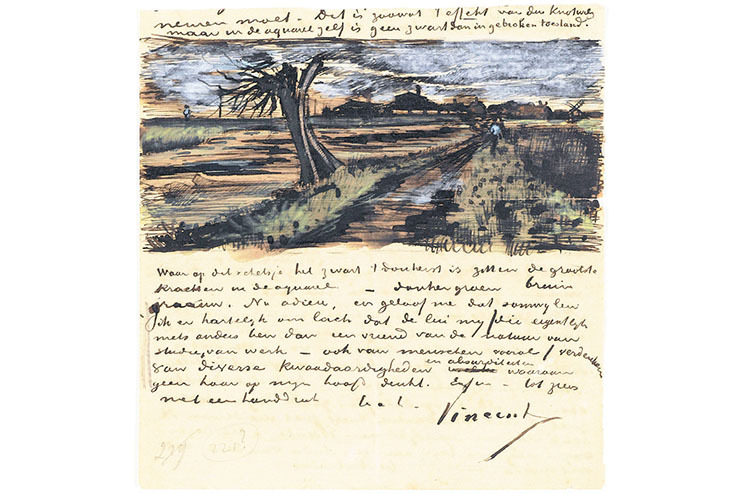 nemen moet. Dit is zoowat 't effekt van den Knotwilg
maar in de aquarel zelf is geen zwart dan in gebroken toestand.
Waar op dit schetsje het zwart 't donkerst is zitten de grootste
krachten in de aquarel – donkergroen bruin
graauw. Nu adieu, en geloof me dat somwijlen
ik er hartelijk om lach dat de lui mij (die eigentlijk
niets anders ben dan een vriend van de natuur van
studie, van werk – ook van menschen vooral) verdenken
van diverse kwaadaardigheden en absurditeiten waaraan
geen haar op mijn hoofd denkt. Enfin – tot ziens
met een handdruk t. à t.
Vincent